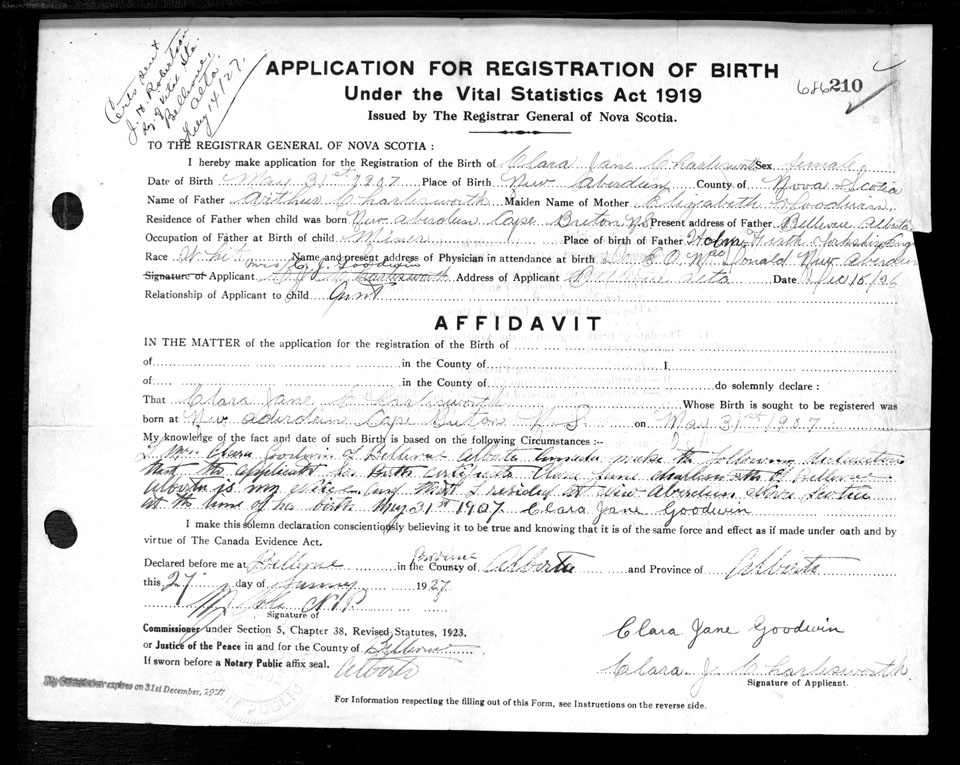 Certs sent
J. H. Robertson
Vital Sta.
Bellevue,
Alta.
14/27.
APPLICATION FOR REGISTRATION OF BIRTH
686 210
Under the Vital Statistics Act 1919
Issued by The Registrar General of Nova Scotia.
TO THE REGISTRAR GENERAL OF NOVA SCOTIA :
I hereby make application for the Registration of the Birth of Clara Jane Charlesworth Sex female
Date of Birth May 31st 1907 Place of Birth New Aberdeen County of Nova Scotia
Name of Father Arthur Charlesworth Maiden Name of Mother Elizabeth Goodwin
Residence of Father when child was born New Aberdeen Cape Breton N.S. Present address of Father Bellevue Alberta
Occupation of Father at Birth of child Miner Place of birth of Father Firth Yorkshire Eng
Race White Name and present address of Physician in attendance at birth Donald New Aberdeen
Mrs C. J. Goodwin
Signature of Applicant Charlesworth Address of Applicant Bellevue Alta Date Dec 15/26
Relationship of Applicant to child Aunt
AFFIDAVIT
IN THE MATTER of the application for the registration of the Birth of
of in the County of I,
of in the County of do solemnly declare :
That Clara Jane Charlesworth Whose Birth is sought to be registered was
born at New Cape Breton N.S. on May 31st 1907
My knowledge of the fact and date of such Birth is based on the following Circumstances :-
I Mrs. Clara Goodwin of Bellevue Alberta Canada make the following declaration
that the applicant for Birth Certificate Clara Jane Charlesworth of Bellevue
Alberta is my and that I resided at New Aberdeen Nova Scotia
at the time of her birth May 31st 1907. Clara Jane Goodwin
I make this solemn declaration conscientiously believing it to be true and knowing that it is of the same force and effect as if made under oath and by
virtue of The Canada Evidence Act.
Declared before me at Bellevue in the County of Province Alberta and Province of Alberta
this 27 day of January 1927
N.P.
Signature of
Commissioner under Section 5, Chapter 38, Revised Statutes, 1923,
or Justice of the Peace in and for the County of Bellevue
If sworn before a Notary Public affix seal. Alberta
Clara Jane Goodwin
Clara J. Charlesworth
Signature of Applicant.
My Commission expires on 31st December, 1927
For Information respecting the filling out of this Form, see Instructions on the reverse side.